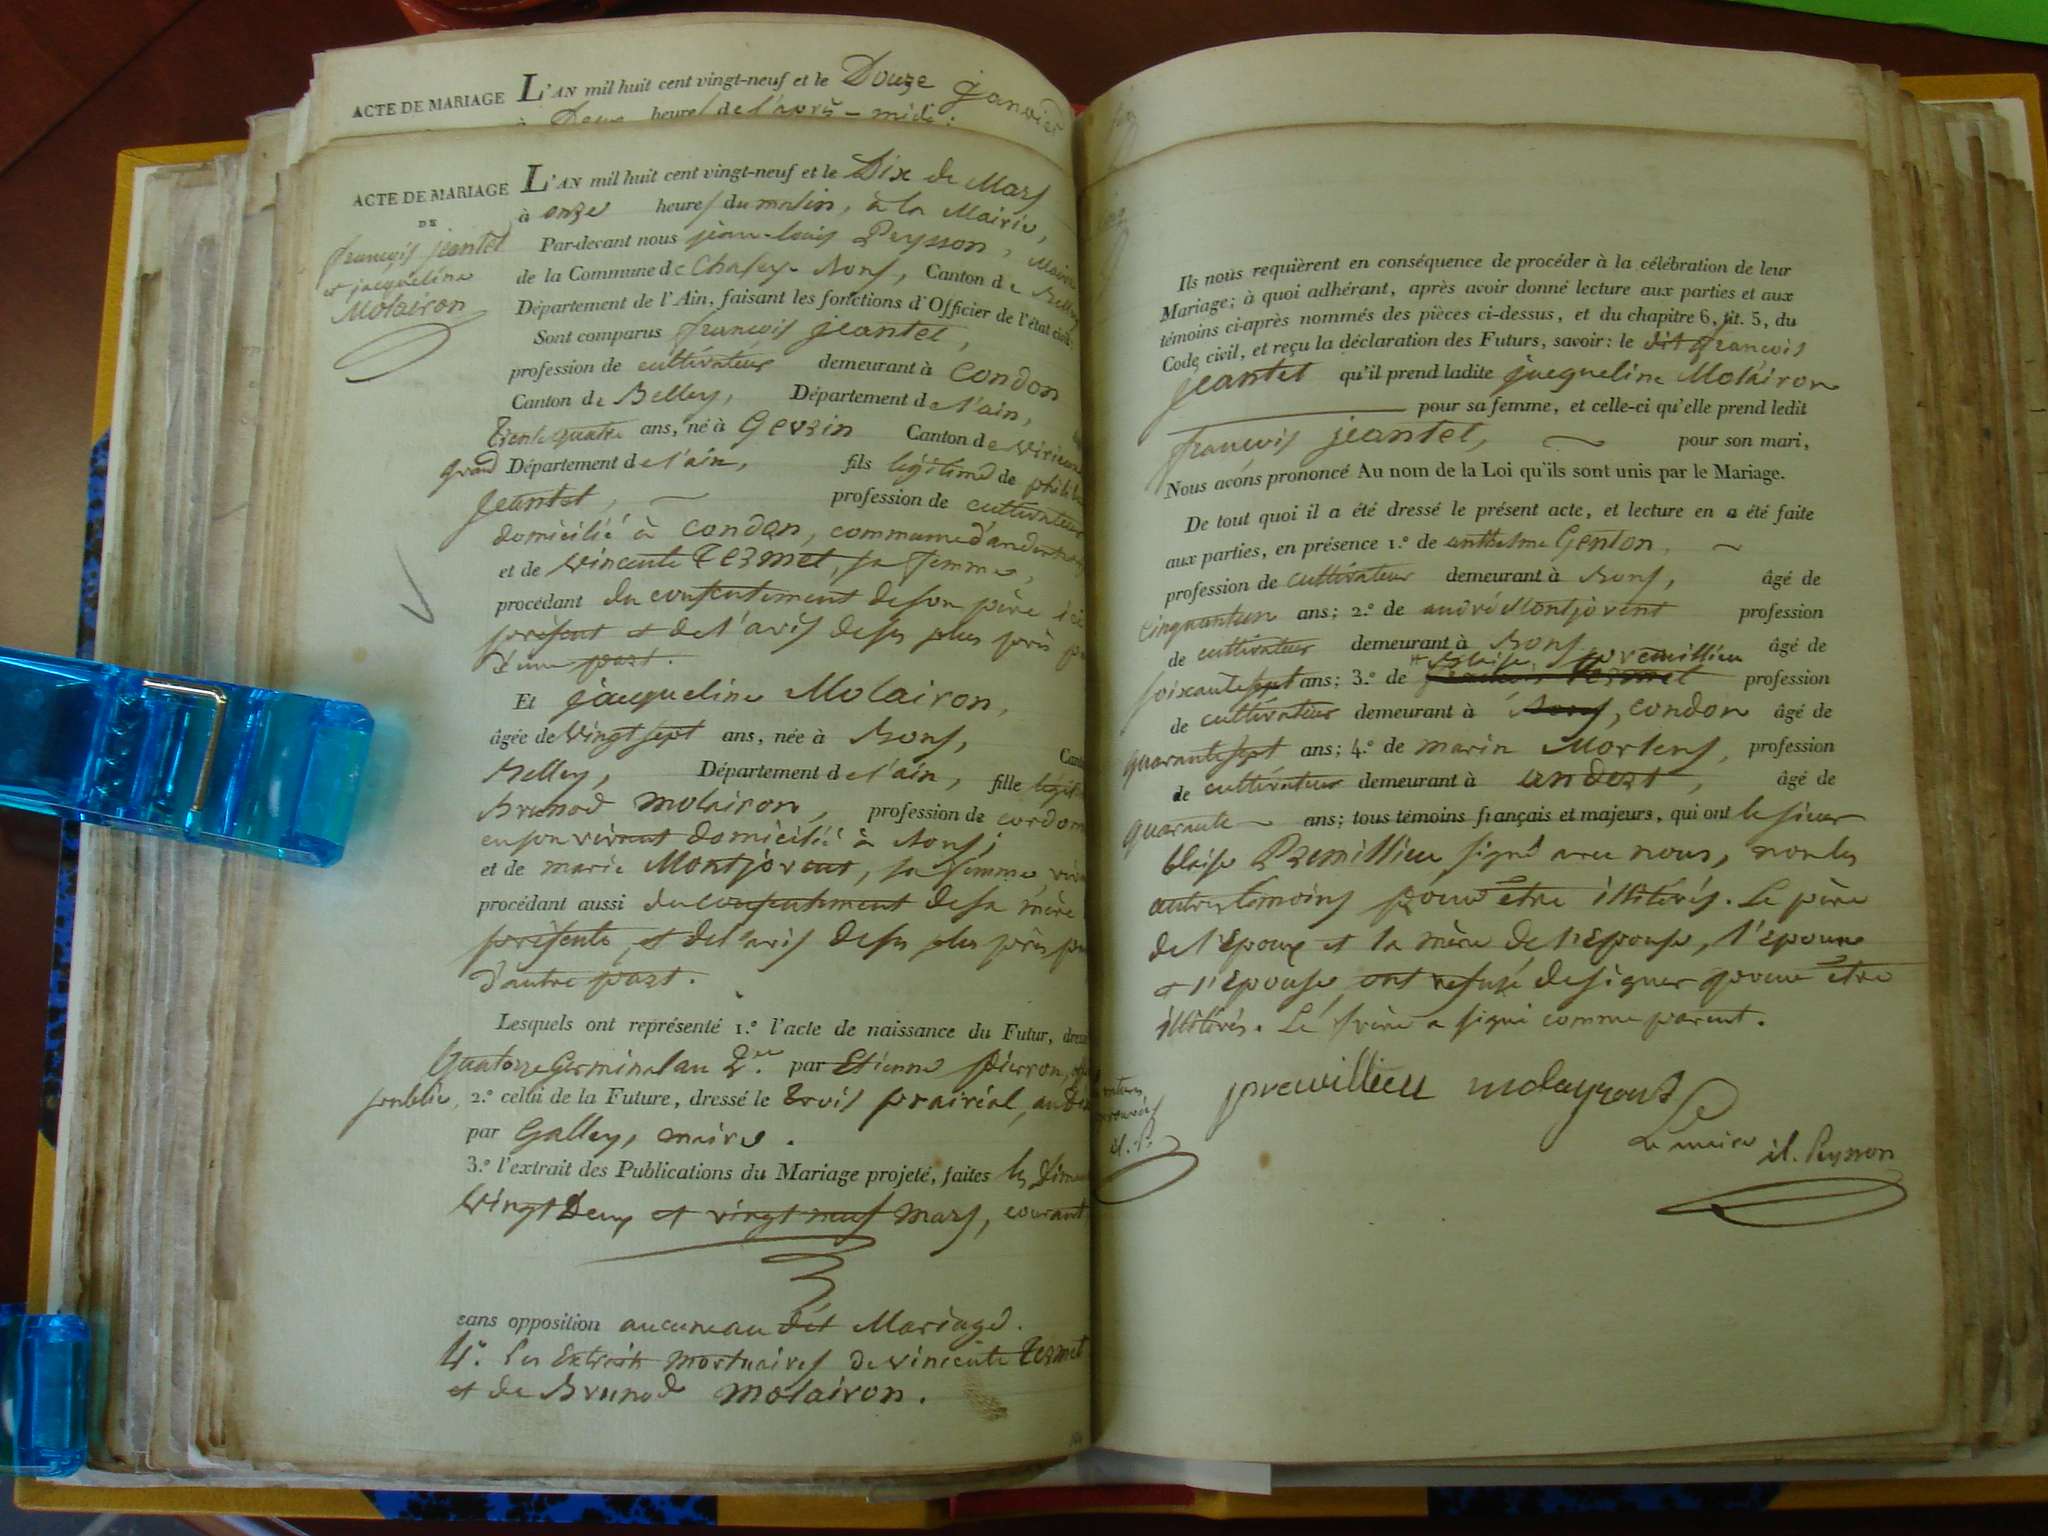 ACTE DE MARIAGE L'AN mil huit cent vingt-neuf et le Douze janvier
à Deux heures de l'après-midi
ACTE DE MARIAGE
DE
françois jeantet
et jacqueline
Molairon
L'AN mil huit cent vingt-neuf et le Dix de Mars
à onze heures du matin, à la Mairie,
Par-devant nous jean-louis Peysson, Maire
de la Commune de Chasey-Bons, Canton de Belley
Département de l'Ain, faisant les fonctions d'Officier de l'état civil.
Sont comparus françois jeantet,
profession de cultivateur demeurant à Condon
Canton de Belley, Département de l'ain,
trente quatre ans, né à Gevrin Canton de virieux
grand Département de l'ain, fils légitime de
jeantet, profession de cultivateur
domicilié à Condon, commune d'andert
et de vincente Termet, sa femme,
procédant du consentement de son père ici
présent et de l'avis de ses plus près
d'une part.
Et jacqueline Molairon,
âgée de vingt sept ans, née à Bons,
Belley, Département de l'ain, fille
Brunod molairon, profession de
en son vivant domicilié à Bons,
et de marie Montjovent, sa femme,
procédant aussi du consentement de sa mère
présente, et de l'avis de ses plus près
d'autre part.
Lesquels ont représenté 1.º l'acte de naissance du Futur,
Quatorze Germinal an 2.e par Etienne pierron,
public, 2.º celui de la Future, dressé le trois prairéal, an
par Galley, maire.
3.º l'extrait des Publications du Mariage projeté, faites les
vingt Deux et vingt neuf Mars, courant
sans opposition aucune au dit Mariage.
4.º Les Extraits mortuaires de vincente Termet
et de Brunod molairon.
Ils nous requièrent en conséquence de procéder à la célébration de leur
Mariage; à quoi adhérant, après avoir donné lecture aux parties et aux
témoins ci-après nommés des pièces ci-dessus, et du chapitre 6, tit. 5, du
Code civil, et reçu la déclaration des Futurs, savoir: le dit françois
jeantet qu'il prend ladite jacqueline Molairon
pour sa femme, et celle-ci qu'elle prend ledit
françois jeantet, pour son mari,
Nous avons prononcé Au nom de la Loi qu'ils sont unis par le Mariage.
De tout quoi il a été dressé le présent acte, et lecture en a été faite
aux parties, en présence 1.º de anthelme Genton,
profession de cultivateur demeurant à Bons, âgé de
cinquante un ans; 2.º de andré Montjovent profession
de cultivateur demeurant à Bons âgé de
soixante sept ans; 3.º de Blaise premillieu profession
de cultivateur demeurant à Bons, Condon âgé de
quarante sept ans; 4.º de marin Mortens, profession
de cultivateur demeurant à andert, âgé de
quarante ans; tous témoins français et majeurs, qui ont le sieur
blaise Premillieu signé avec nous, non les
autres témoins pour être illitérés. Le père
de l'Epoux et la mère de l'Epouse, l'époux
et l'épouse ont refusé de signer pour être
illitérés. Le frère a signé comme parent.
premillieu molayront
Le maire jl. Peysson